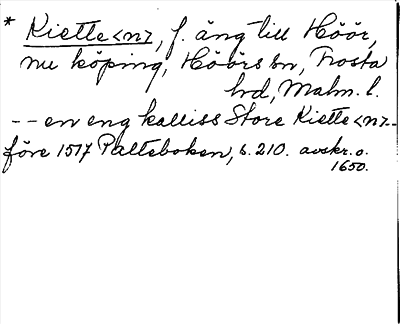 * Kiette<nz, f. äng till Höör,
nu köping, Höörs sn, Frosta
hrd, Malm. l.
-- en eng kalliss Store Kiette<nz--
före 1517 Palteboken, s. 210. avskr. o.
1650.